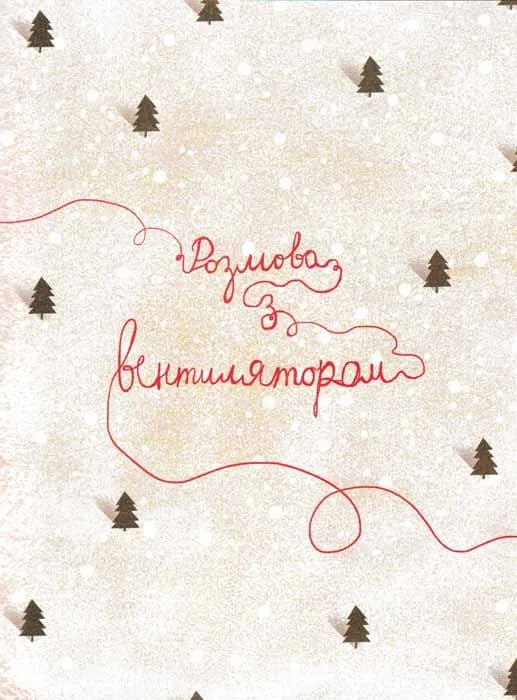 Розмова
з
вентилятором